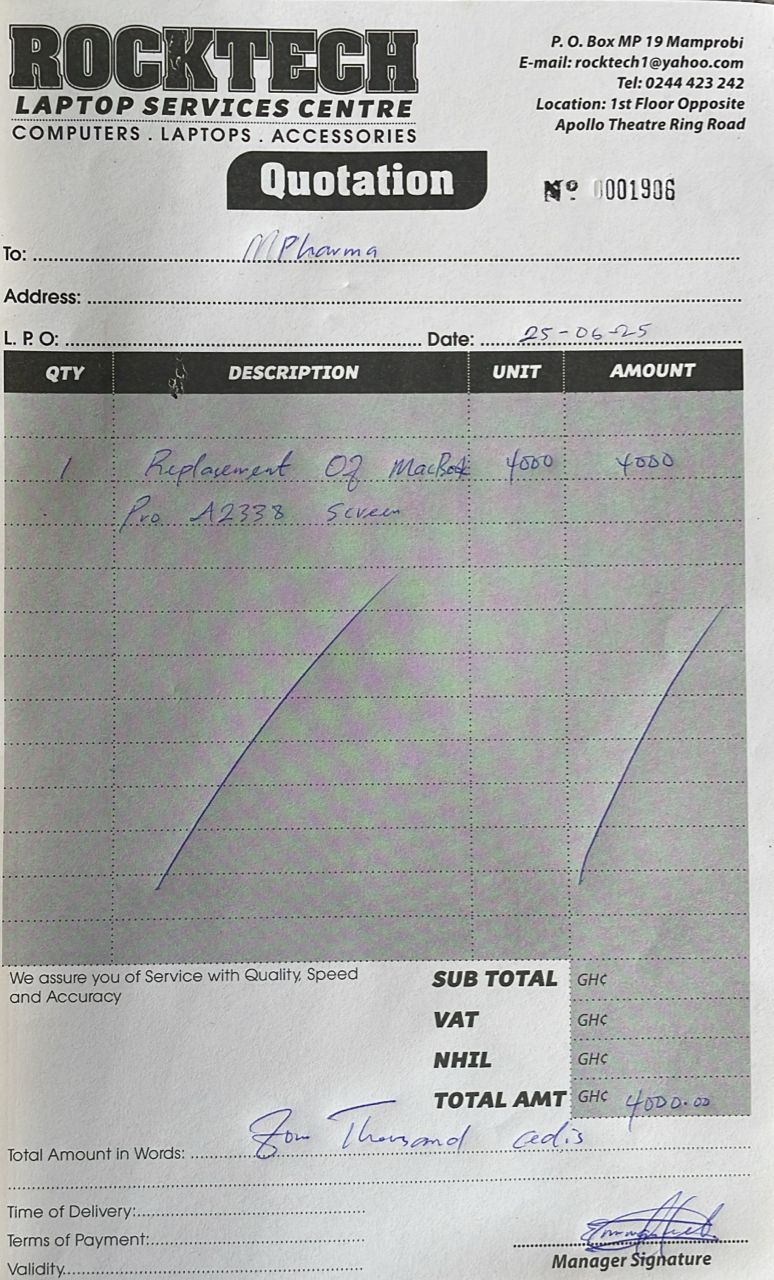 ROCKTECH
LAPTOP SERVICES CENTRE
COMPUTERS . LAPTOPS . ACCESSORIES
P. O. Box MP 19 Mamprobi
E-mail: rocktech1@yahoo.com
Tel: 0244 423 242
Location: 1st Floor Opposite
Apollo Theatre Ring Road
Quotation
Nº 0001906
To: MPharma
Address:
L. P. O: Date: 25-06-25
QTY DESCRIPTION UNIT AMOUNT
1 Replacement Of MacBook 4000 4000
Pro A2338 Screen
We assure you of Service with Quality, Speed
and Accuracy
SUB TOTAL GH¢
VAT GH¢
NHIL GH¢
TOTAL AMT GH¢ 4000.00
Total Amount in Words: Four Thousand cedis
Time of Delivery:
Terms of Payment:
Validity
Manager Signature